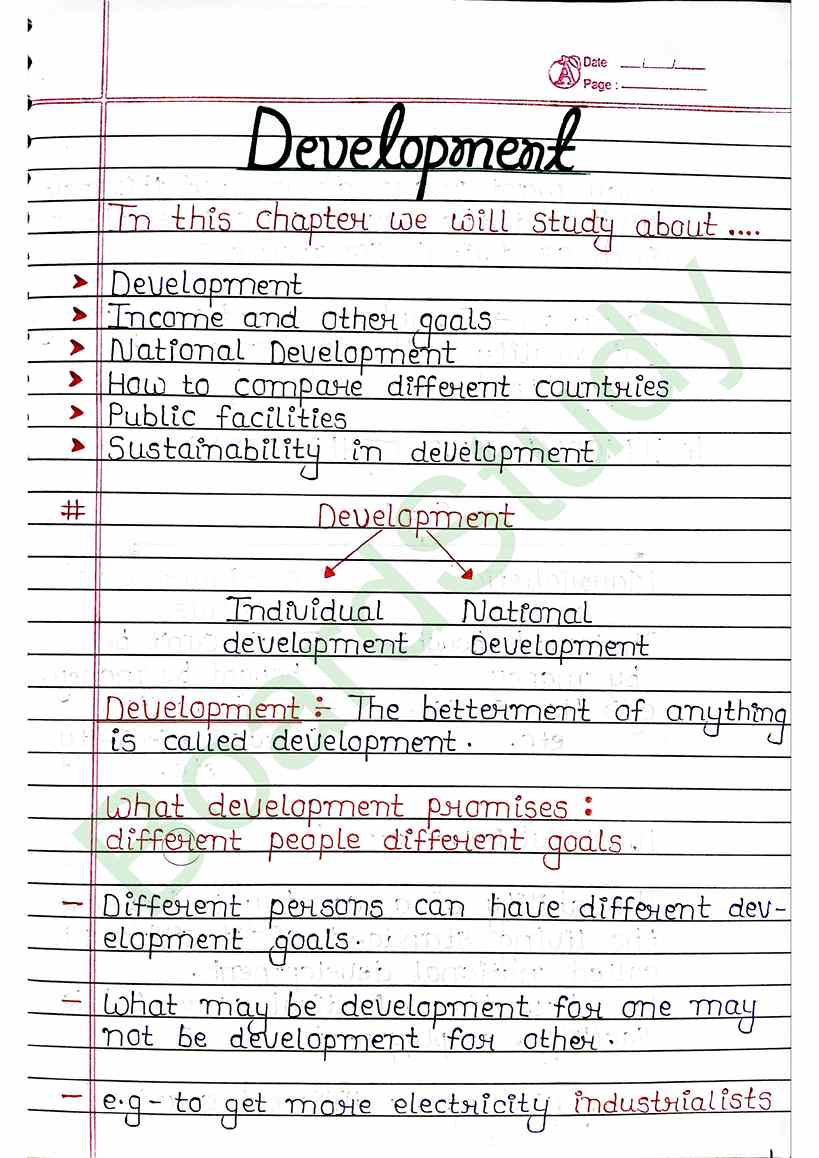 Date __/__/__
Page : ______
Development
In this chapter we will study about ....
➤ Development
➤ Income and other goals
➤ National Development
➤ How to compare different countries
➤ Public facilities
➤ Sustainability in development
# Development
Individual development
National Development
Development :- The betterment of anything
is called development.
What development promises :
different people different goals.
- Different persons can have different dev-
elopment goals.
- What may be development for one may
not be development for other.
- e.g - to get more electricity industrialists
BoardStudy